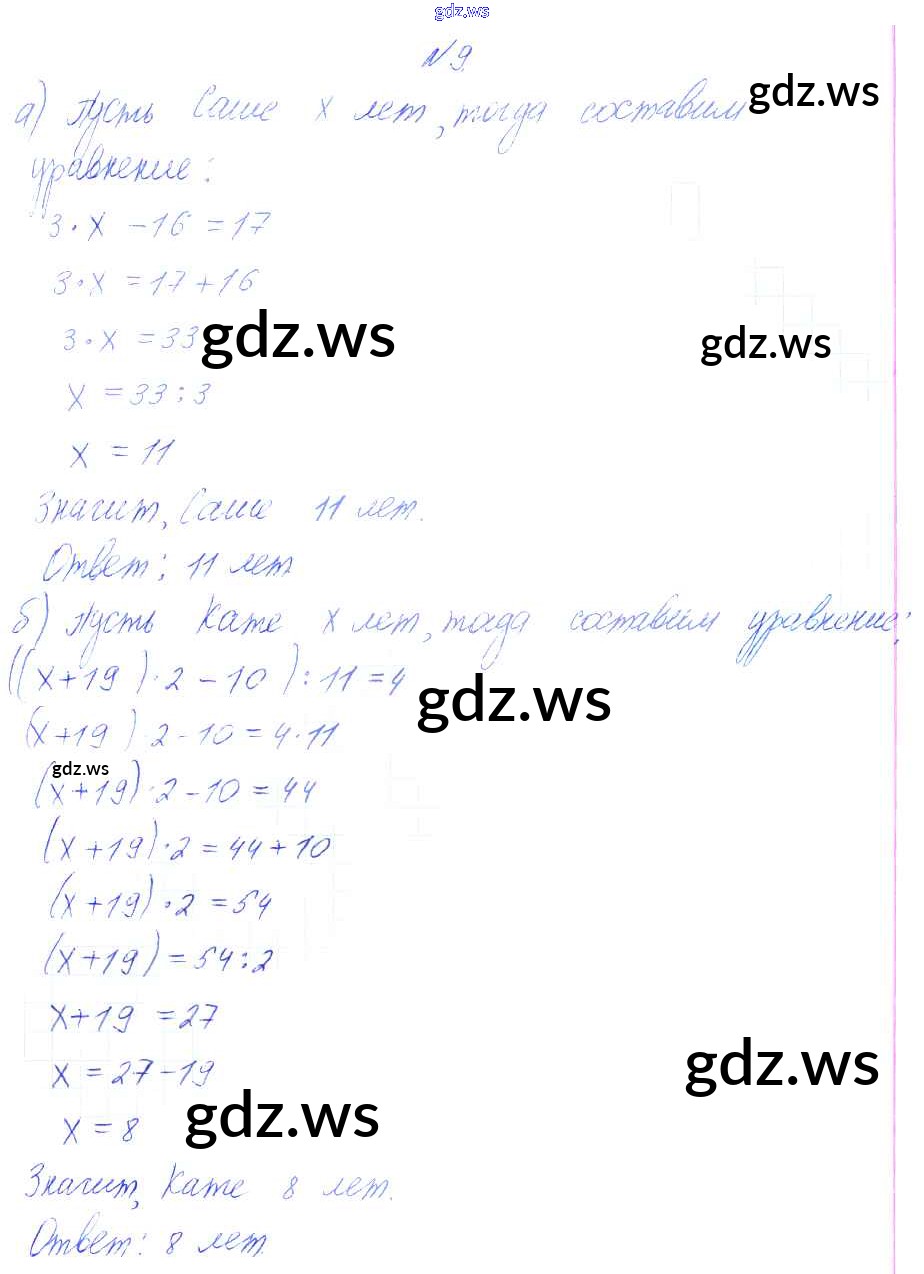 gdz.ws
№9.
а) Пусть Саше x лет, тогда составим gdz.ws
уравнение:
3·x −16 = 17
3·x = 17+16
3·x = 33 gdz.ws gdz.ws
x = 33:3
x = 11
Значит, Саше 11 лет.
Ответ: 11 лет
б) Пусть Кате x лет, тогда составим уравнение:
((x+19)·2−10):11=4
gdz.ws
(x+19)·2−10=4·11
gdz.ws
(x+19)·2−10=44
(x+19)·2=44+10
(x+19)·2=54
(x+19)=54:2
x+19=27
gdz.ws
x=27−19
x=8 gdz.ws
Значит, Кате 8 лет.
Ответ: 8 лет.